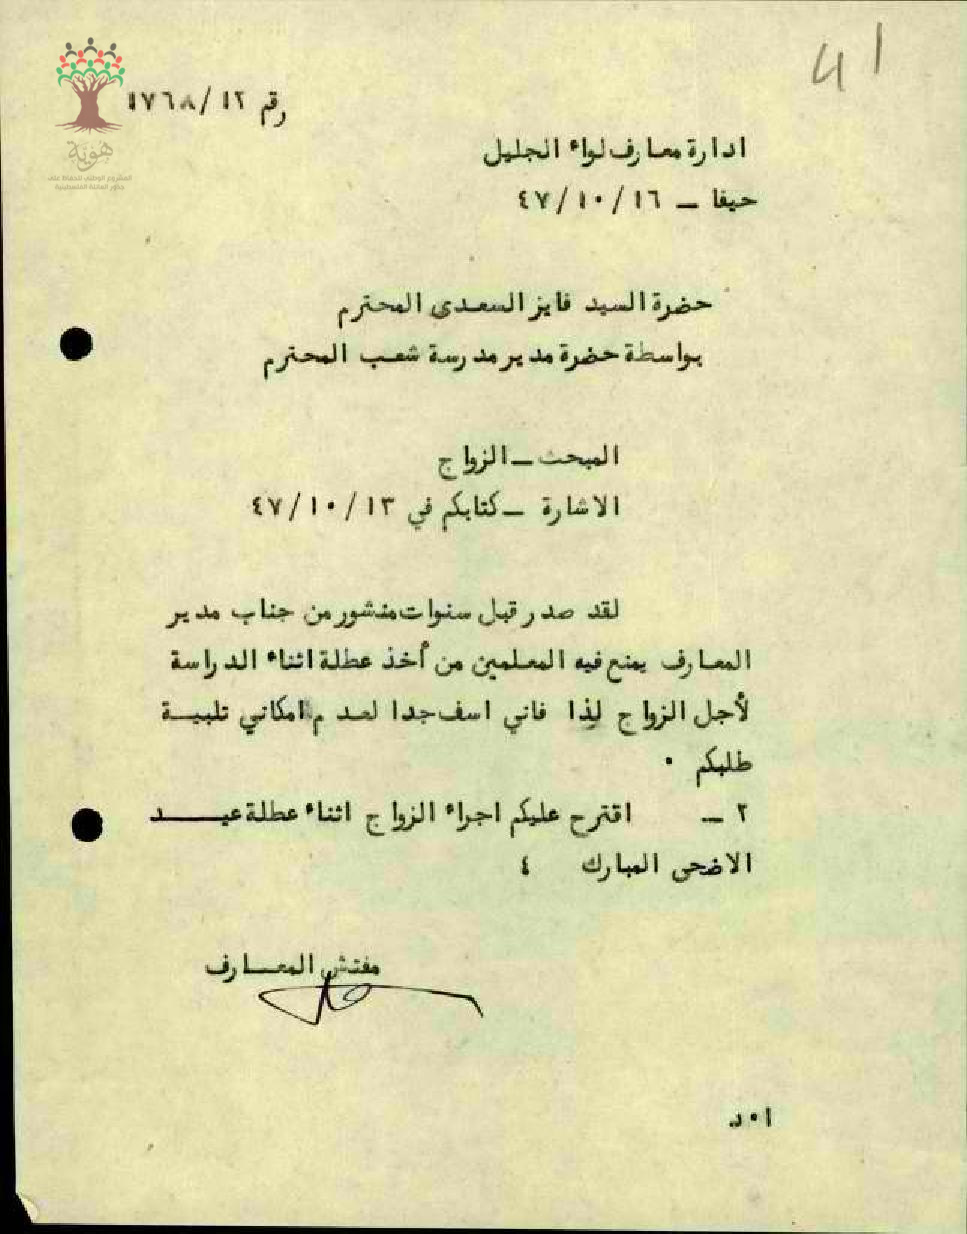 41
هوية
المشروع الوطني للحفاظ على
جذور العائلة الفلسطينية
رقم ١٢/١٧٦٨
ادارة معارف لواء الجليل
حيفا ــ ٤٧/١٠/١٦
حضرة السيد فايز السعدى المحترم
بواسطة حضرة مدير مدرسة شعب المحترم
المبحث ــ الزواج
الاشارة ــ كتابكم في ٤٧/١٠/١٣
لقد صدر قبل سنوات منشور من جناب مدير
المعارف يمنع فيه المعلمين من أخذ عطلة اثناء الدراسة
لأجل الزواج لذا فاني اسف جدا لعدم امكاني تلبيـــة
طلبكم ٠
٢ ــ اقترح عليكم اجراء الزواج اثناء عطلة عيـــــد
الاضحى المبارك ٤
مفتش المعــارف
ا٠د